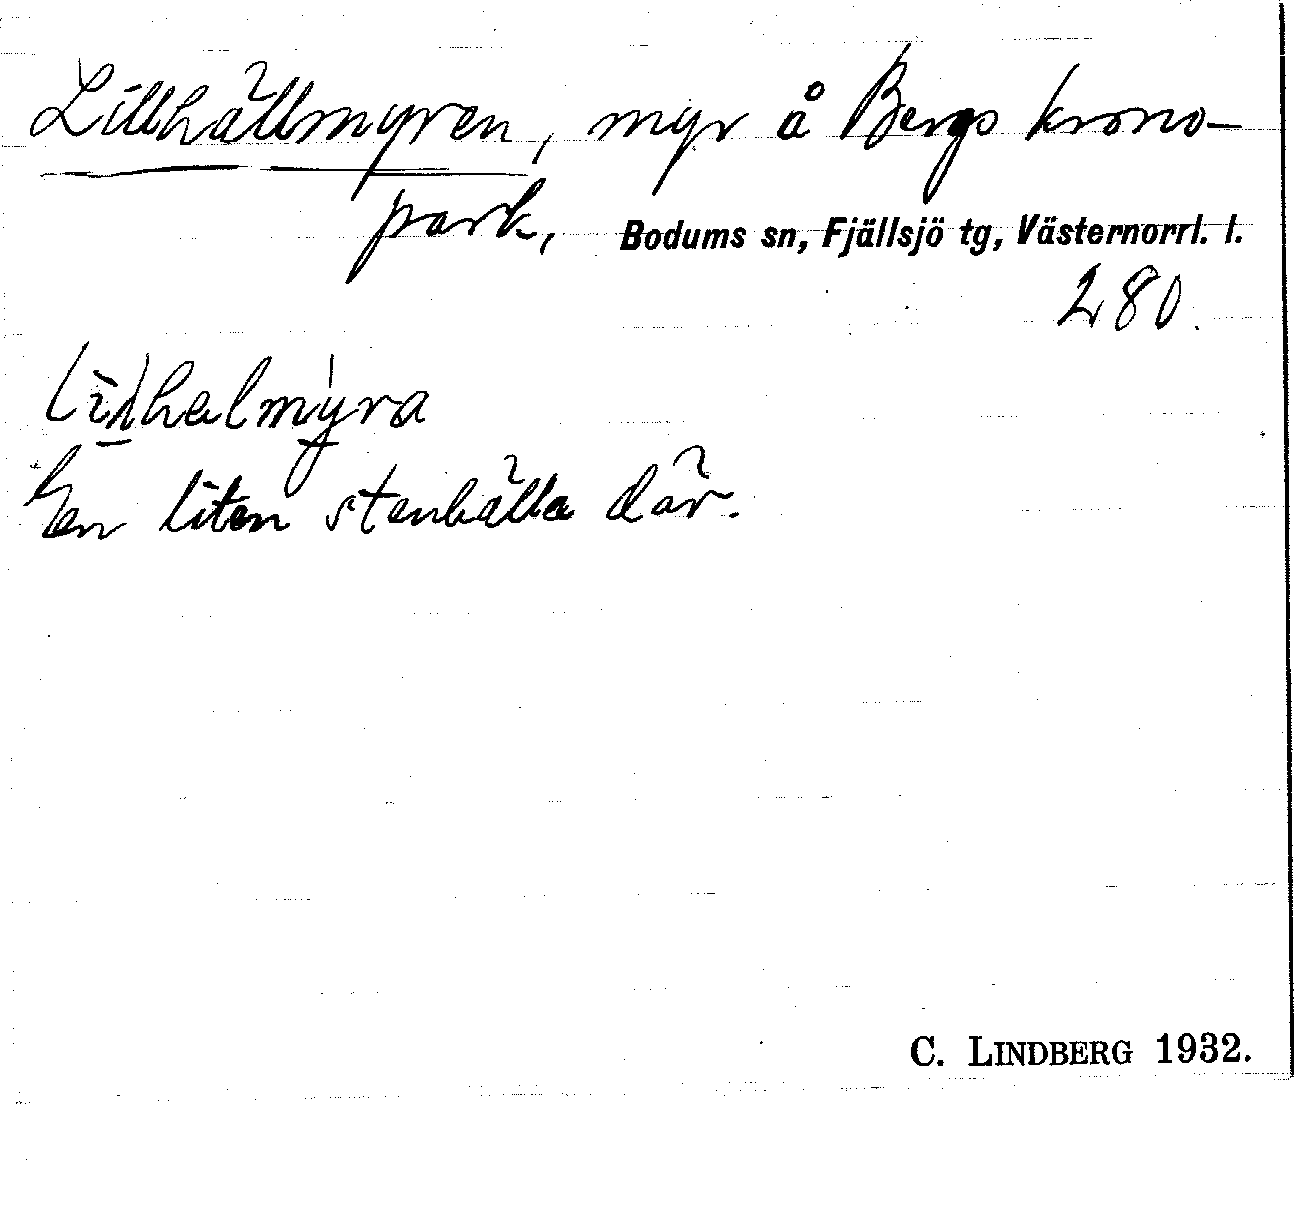 Lillhällmyren, myr å Bergs krono-
park, Bodums sn, Fjällsjö tg, Västernorrl. l.
280.
En liten stenhälla där.
C. LINDBERG 1932.